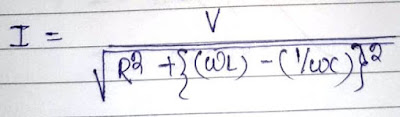 I = V / √(R² + {(ωL) - (1/ωC)}²)